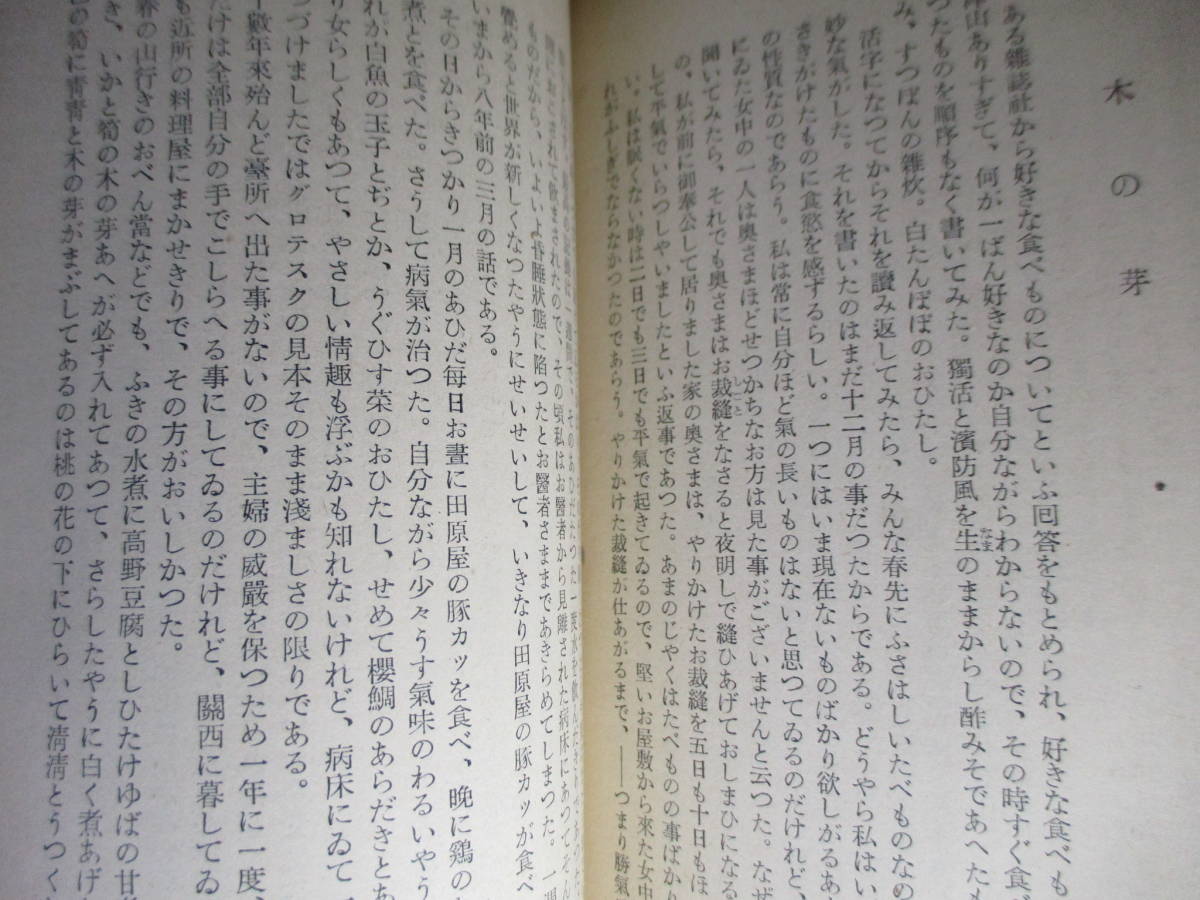 木の芽
ある雑誌社から好きな食べものについてといふ回答をもとめられ、好きな食べも
山ありすぎて、何が一ばん好きなのか自分ながらわからないので、その時すぐ食が
つたものを順序もなく書いてみた。獨活と濱防風を生のままからし酢みそであへたも
み、すつぽんの雑炊。白たんぽぽのおひたし。
活字になつてからそれを讀み返してみたら、みんな春先にふさはしいたべものなの
妙な氣がした。それを書いたのはまだ十二月の事だつたからである。どうやら私はい
さきがけたものに食慾を感ずるらしい。一つにはいま現在ないものばかり欲しがるあ
の性質なのであらう。私は常に自分ほど氣の長いものはないと思つてゐるのだけれど、
にゐた女中の一人は奥さまほどせつかちなお方は見た事がございませんと云つた。なぜ
聞いてみたら、それでも奥さまはお裁縫をなさると夜明しで縫ひあげておしまひになる
の、私が前に御奉公して居りました家の奥さまは、やりかけたお裁縫を五日も十日もほ
して平氣でいらつしやいましたといふ返事であつた。あまのじやくはたべものの事ばかり
い。私は眠くない時は二日でも三日でも平氣で起きてゐるので、堅いお屋敷から來た女中
れがふしぎでならなかつたのであらう。やりかけた裁縫が仕あがるまで、――つまり勝氣
されて飲まされたので、その頃私はお醫者から見離された病床にあつてそん
ものだから、いよいよ昏睡狀態に陷つたとお醫者さままであきらめてしまつた。一週
覺めると世界が新しくなつたやうにせいせいして、いきなり田原屋の豚カツが食べ
いまから八年前の三月の話である。
その日からきつかり一月のあひだ毎日お晝に田原屋の豚カツを食べ、晩に鶏の
煮とを食べた。さうして病氣が治つた。自分ながら少々うす氣味のわるいやう
れが白魚の玉子とぢとか、うぐひす菜のおひたし、せめて櫻鯛のあらだきとあ
り女らしくもあつて、やさしい情趣も浮ぶかも知れないけれど、病床にゐて
つづけましたではグロテスクの見本そのまま淺ましさの限りである。
數年來殆んど臺所へ出た事がないので、主婦の威嚴を保つため一年に一度、
だけは全部自分の手でこしらへる事にしてゐるのだけれど、關西に暮してゐ
も近所の料理屋にまかせきりで、その方がおいしかつた。
春の山行きのおべん當などでも、ふきの水煮に高野豆腐としひたけゆばの甘
き、いかと筍の木の芽あへが必ず入れてあつて、さらしたやうに白く煮あげ
の筍に青青と木の芽がまぶしてあるのは桃の花の下にひらいて淸淸とうつく